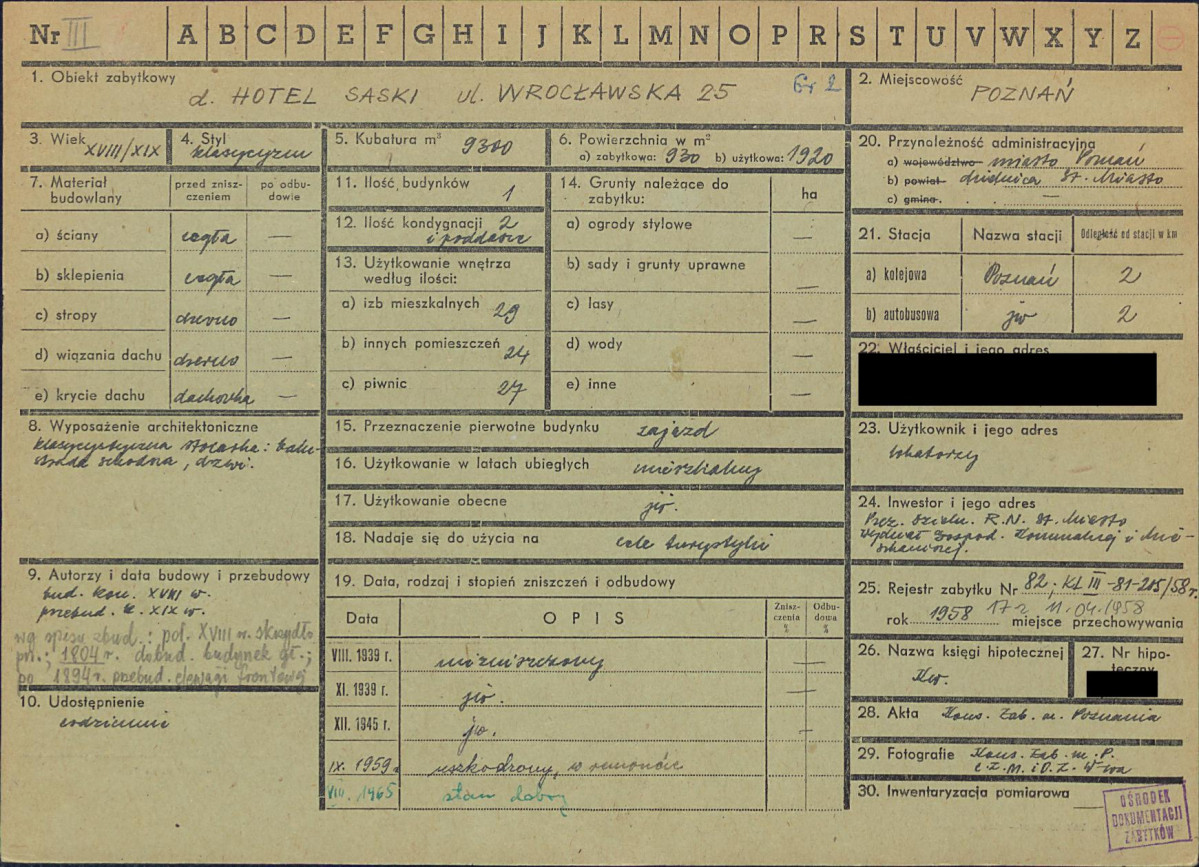 Nr III A B C D E F G H I J K L M N O P R S T U V W X Y Z
1. Obiekt zabytkowy
d. HOTEL SASKI ul. WROCŁAWSKA 25
2. Miejscowość
POZNAŃ
3. Wiek XVIII/XIX
4. Styl klasycyzm
5. Kubatura m³ 9300
6. Powierzchnia w m²
a) zabytkowa: 930 b) użytkowa: 1920
7. Materiał budowlany
przed znisz-
czeniem
po odbu-
dowie
a) ściany cegła —
b) sklepienia cegła —
c) stropy drewno —
d) wiązania dachu drewno —
e) krycie dachu dachówka —
8. Wyposażenie architektoniczne
klasycystyczna stolarka: balu-
strada schodna, drzwi.
9. Autorzy i data budowy i przebudowy
bud. kon. XVIII w.
przebud. k. XIX w.
wg spisu zbud.: poł. XVIII w. skrzydło
pn.; 1804 r. dobud. budynek gł.;
po 1894 r. przebud. elewacji frontowej
10. Udostępnienie
codziennie
11. Ilość budynków 1
12. Ilość kondygnacji 2
i poddasze
13. Użytkowanie wnętrza
według ilości:
a) izb mieszkalnych 29
b) innych pomieszczeń 24
c) piwnic 27
14. Grunty należące do
zabytku: ha
a) ogrody stylowe —
b) sady i grunty uprawne —
c) lasy —
d) wody —
e) inne —
15. Przeznaczenie pierwotne budynku zajazd
16. Użytkowanie w latach ubiegłych mieszkalny
17. Użytkowanie obecne jw.
18. Nadaje się do użycia na cele turystyki
19. Data, rodzaj i stopień zniszczeń i odbudowy
Data OPIS
Znisz-
czenia
%
Odbu-
dowa
%
VIII. 1939 r. niezniszczony —
XI. 1939 r. jw. —
XII. 1945 r. jw. —
IX. 1959 r. uszkodzony, w remoncie
VIII. 1965 stan dobry
20. Przynależność administracyjna
a) województwo miasto Poznań
b) powiat dzielnica St. Miasto
c) gmina —
21. Stacja Nazwa stacji Odległość od stacji w km
a) kolejowa Poznań 2
b) autobusowa jw 2
22. Właściciel i jego adres
23. Użytkownik i jego adres
lokatorzy
24. Inwestor i jego adres
Prez. Dzieln. R.N. St. Miasto
Wydział Gospod. Komunalnej i Mie-
szkaniowej.
25. Rejestr zabytku Nr 82, KL III-81-205/58 r.
rok 1958 17 z 11.04.1958 miejsce przechowywania
26. Nazwa księgi hipotecznej
Kw.
27. Nr hipo-
teczny
28. Akta Kons. Zab. m. Poznania
29. Fotografie Kons. Zab. m. P.
C.Z.M. i O.Z. W-wa
30. Inwentaryzacja pomiarowa —
OŚRODEK
DOKUMENTACJI
ZABYTKÓW